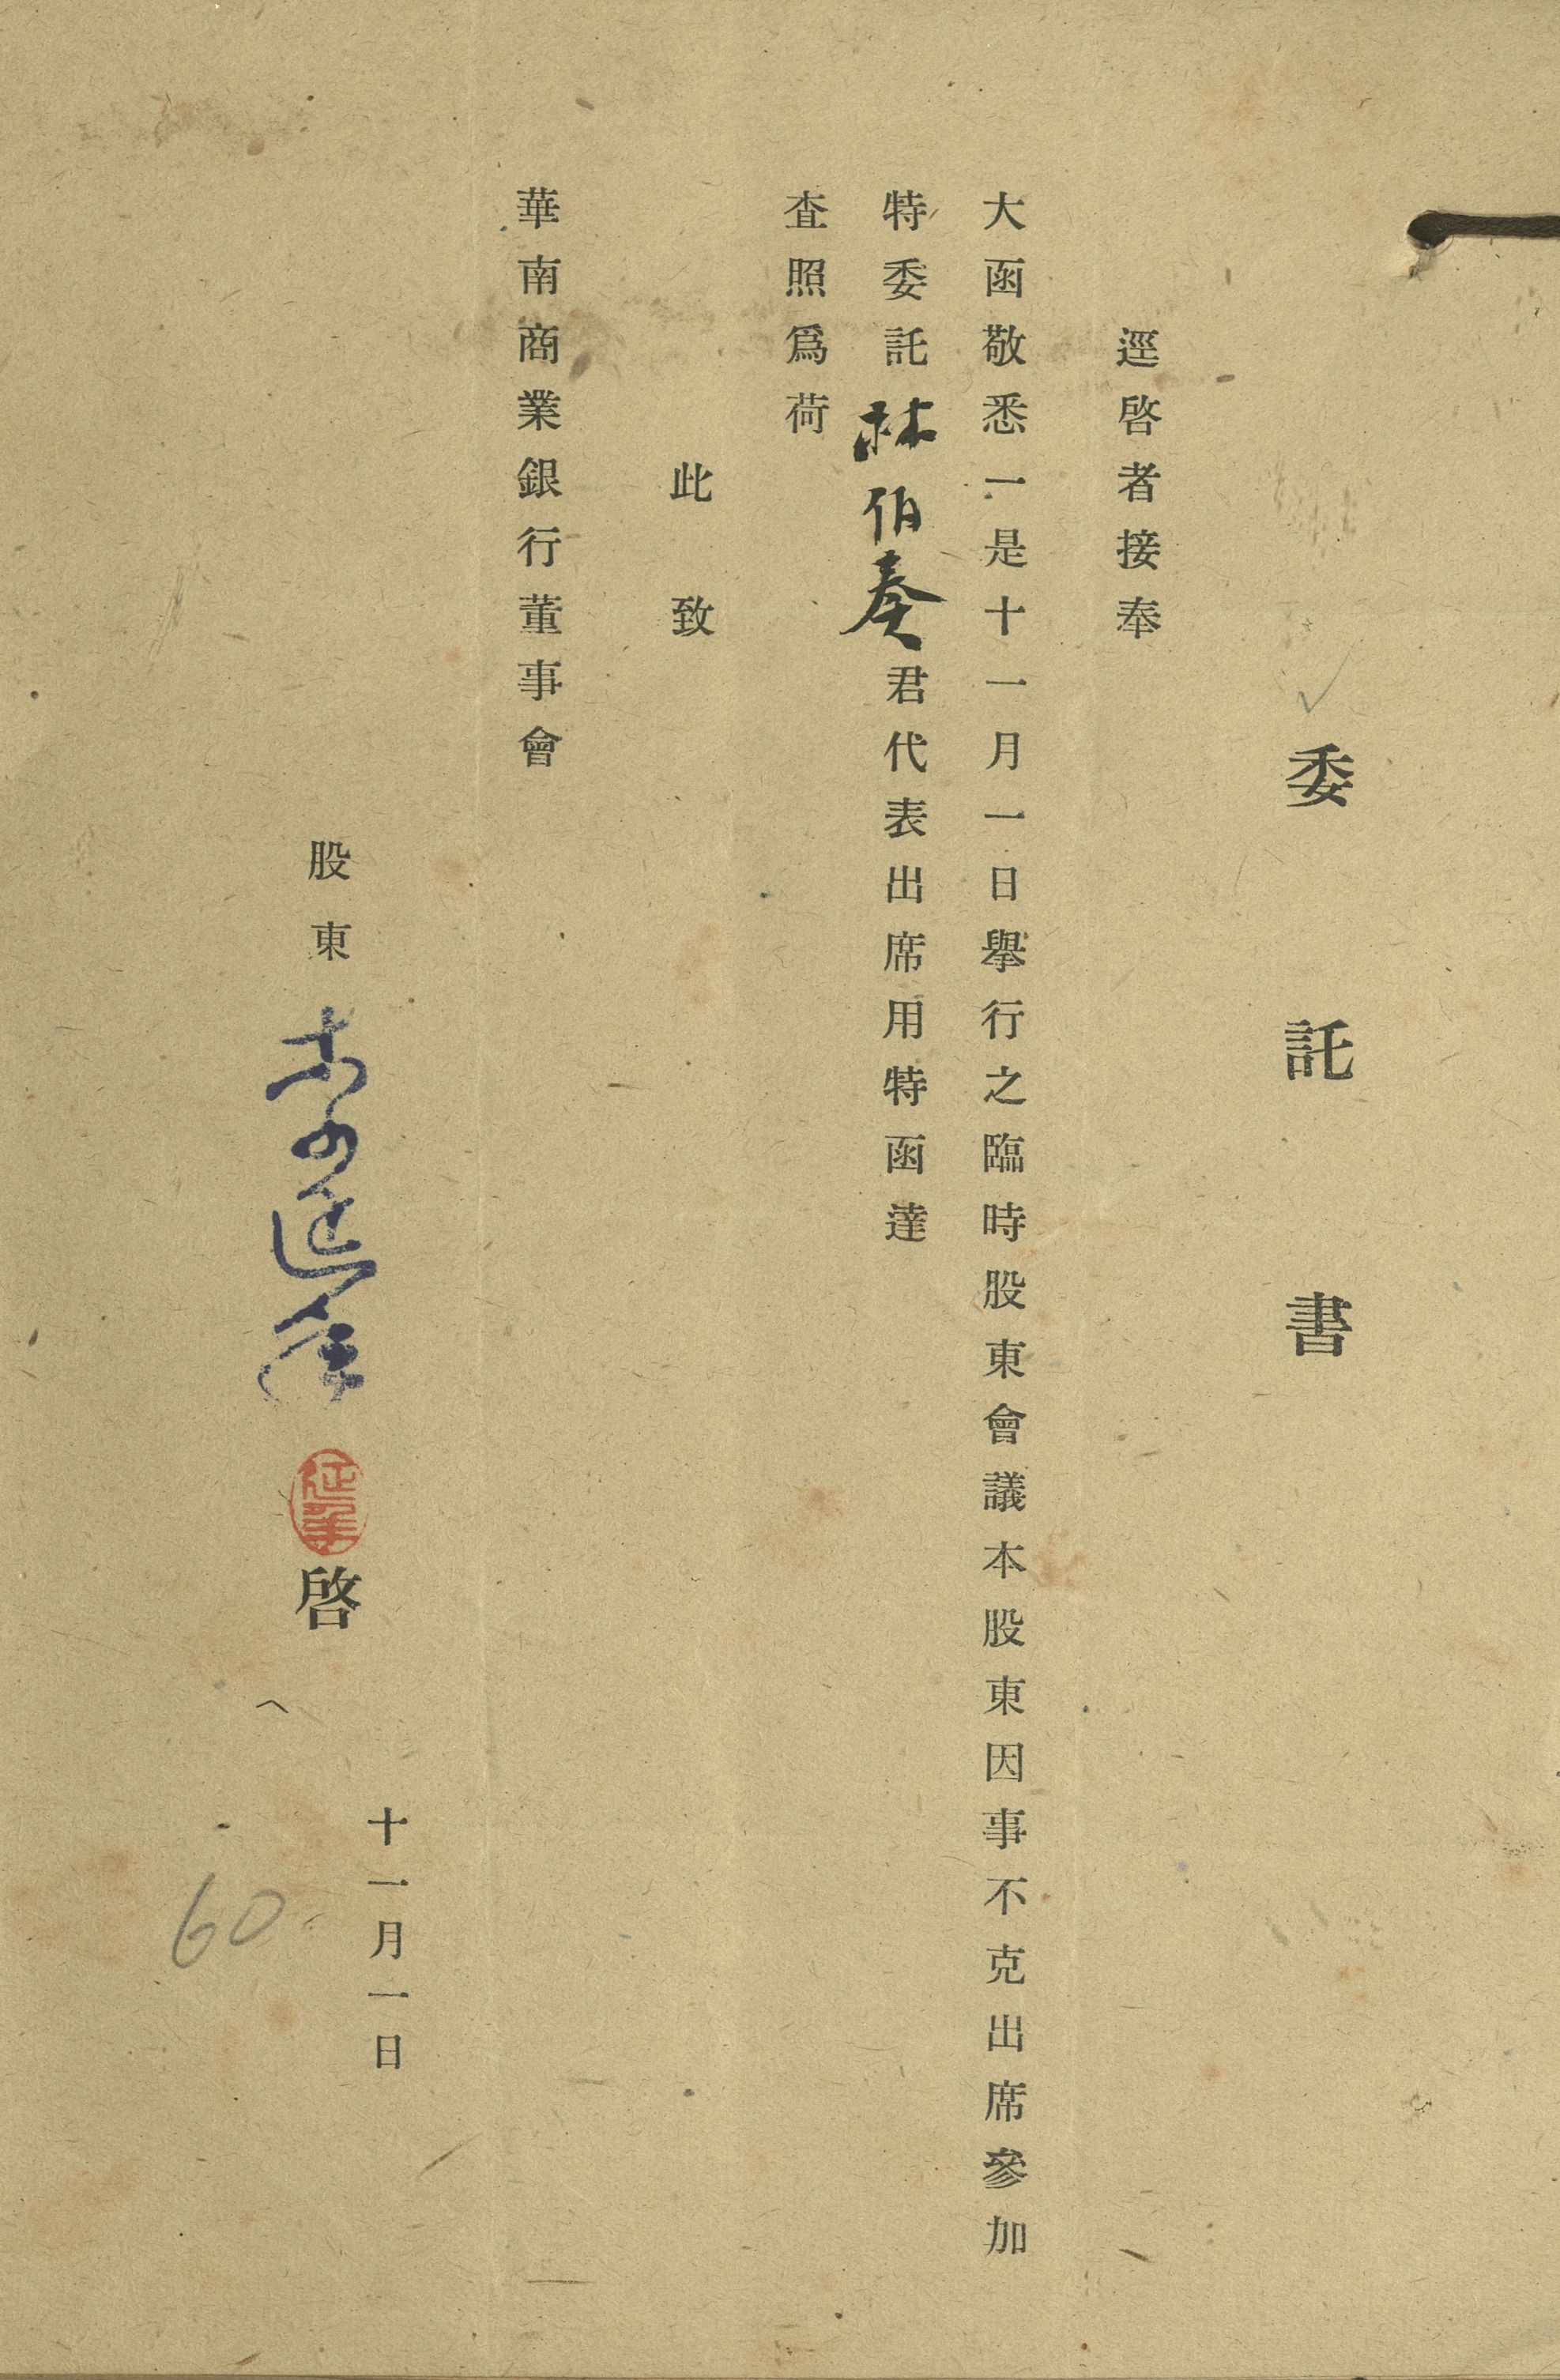 委託書
逕啓者接奉
大函敬悉一是十一月一日舉行之臨時股東會議本股東因事不克出席參加
特委託林伯奏君代表出席用特函達
査照爲荷
此致
華南商業銀行董事會
股東李延年啓
十一月一日
60